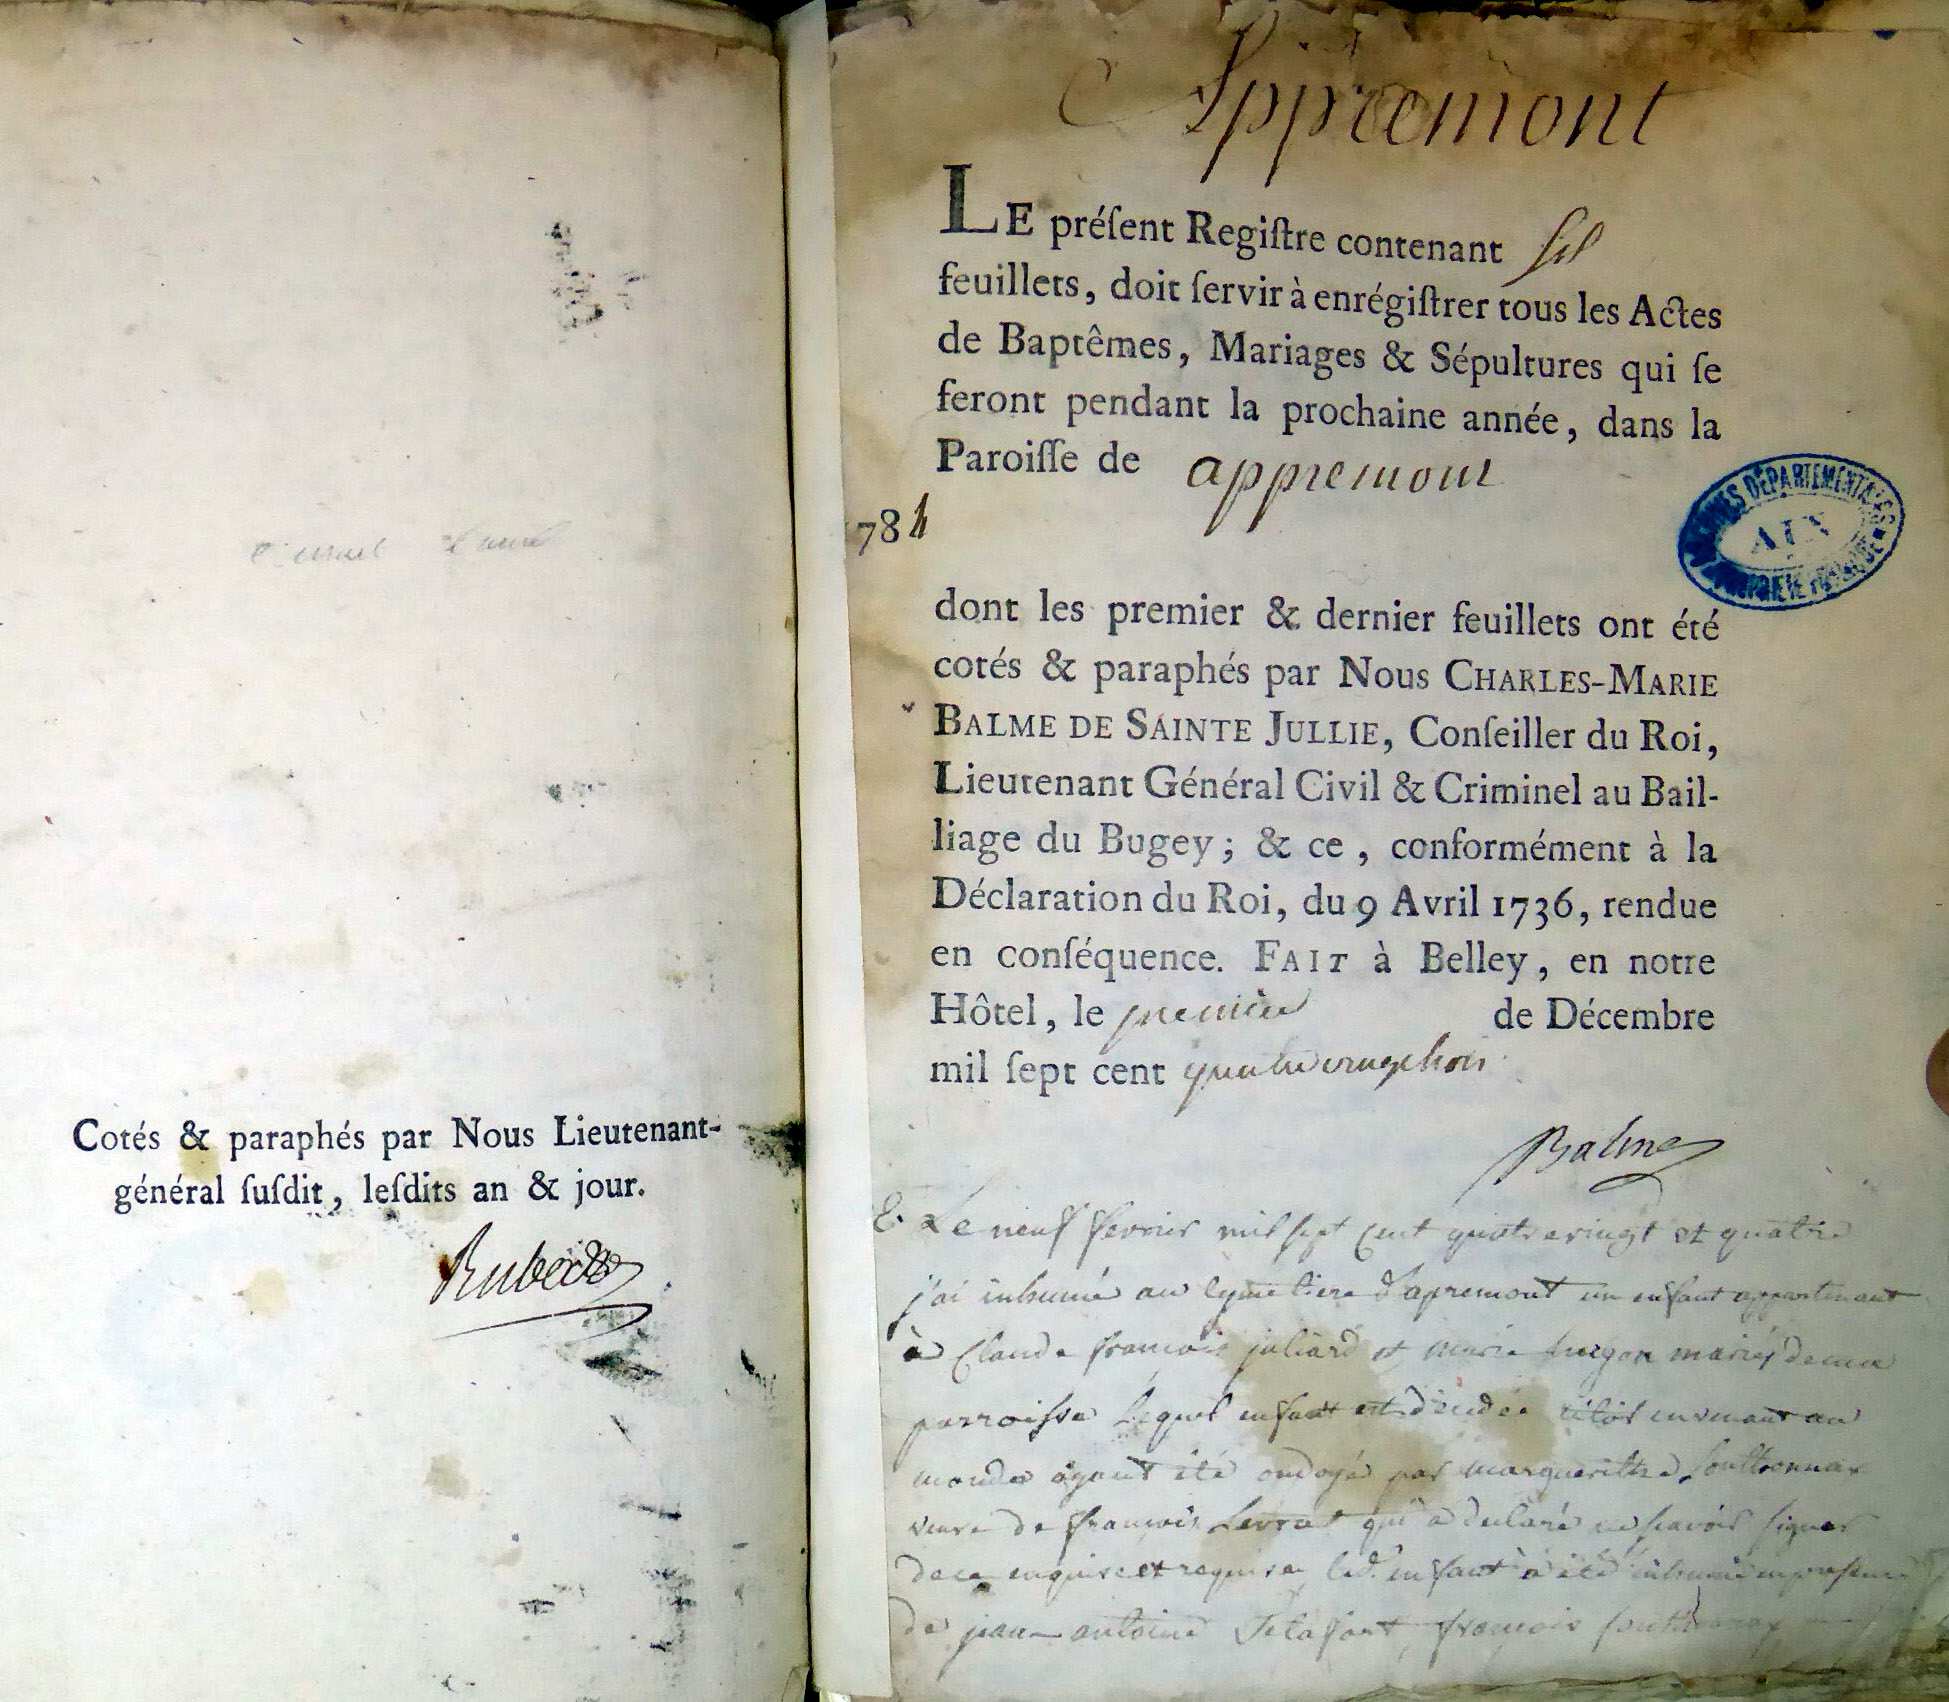 Cotés & paraphés par Nous Lieutenant-
général ſuſdit, leſdits an & jour.
Appremont
LE préſent Regiſtre contenant
feuillets, doit ſervir à enrégiſtrer tous les Actes
de Baptêmes, Mariages & Sépultures qui ſe
feront pendant la prochaine année, dans la
Paroiſſe de appremont
784
ARCHIVES DÉPARTEMENTALES
AIN
PROPRIÉTÉ PUBLIQUE
dont les premier & dernier feuillets ont été
cotés & paraphés par Nous CHARLES-MARIE
BALME DE SAINTE JULLIE, Conſeiller du Roi,
Lieutenant Général Civil & Criminel au Bail-
liage du Bugey ; & ce , conformément à la
Déclaration du Roi, du 9 Avril 1736, rendue
en conſéquence. FAIT à Belley, en notre
Hôtel, le premier de Décembre
mil ſept cent quatrevingt trois
Balme
Le neuf fevrier mil sept cent quatrevingt et quatre
j'ai inhumé au cymetiere d'apremont un enfant appartenant
à Claude françois juliard et marie mariés de cette
parroisse lequel enfant est décédé venant au
monde ayant été ondoyé par marguerithe
veuve de françois Levrat qui a declaré ne scavoir signer
de ce enquise et requise led. enfant a été inhumé en presence
de jean antoine françois